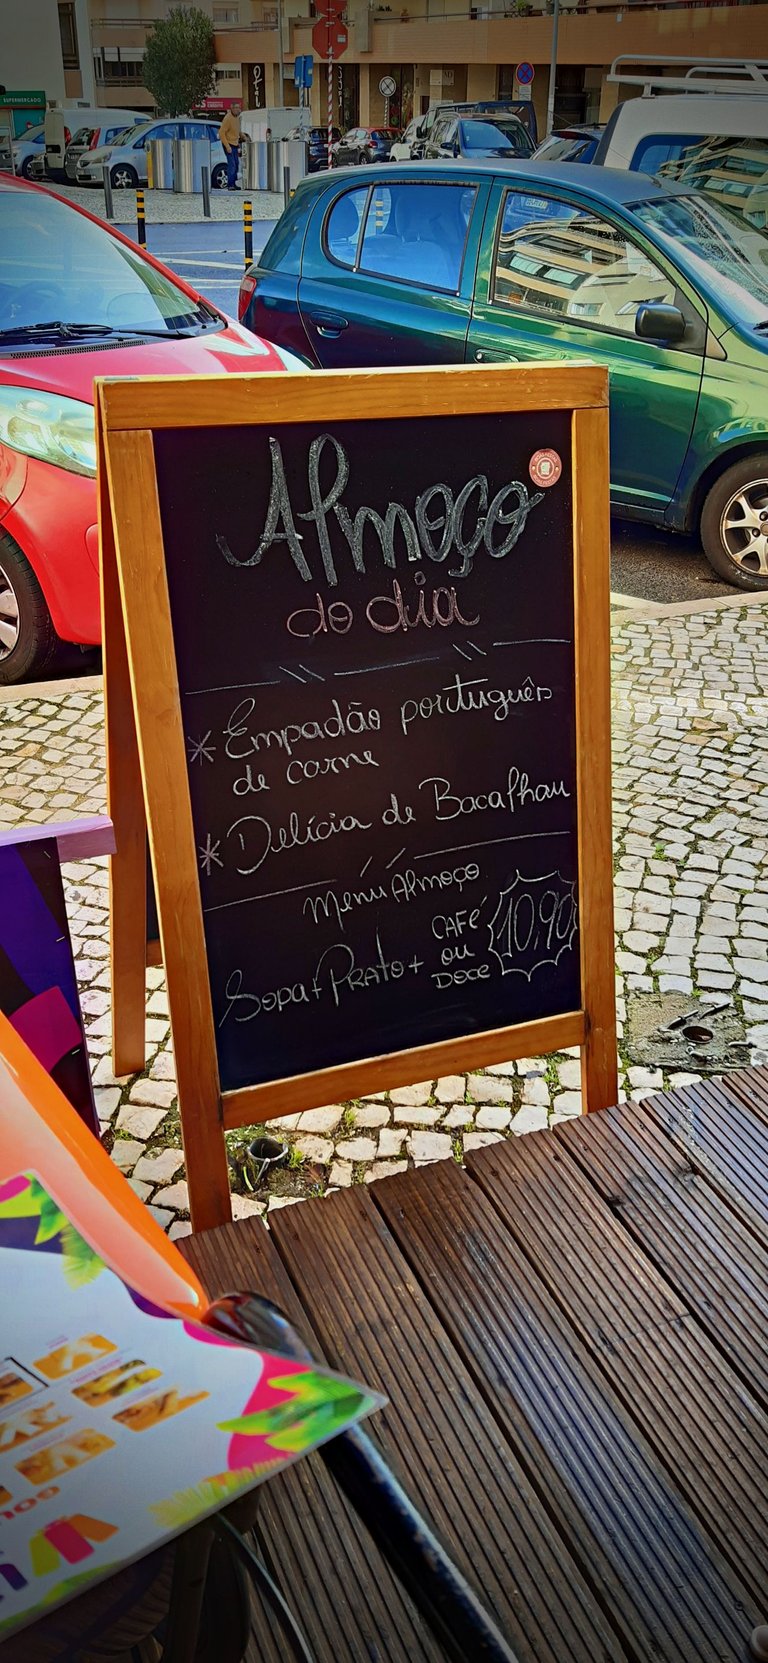 SUPERMERCADO
Almoço
do dia
* Empadão português
de carne
* Delícia de Bacalhau
Menu Almoço
Sopa + Prato + CAFÉ
ou
DOCE
10,90